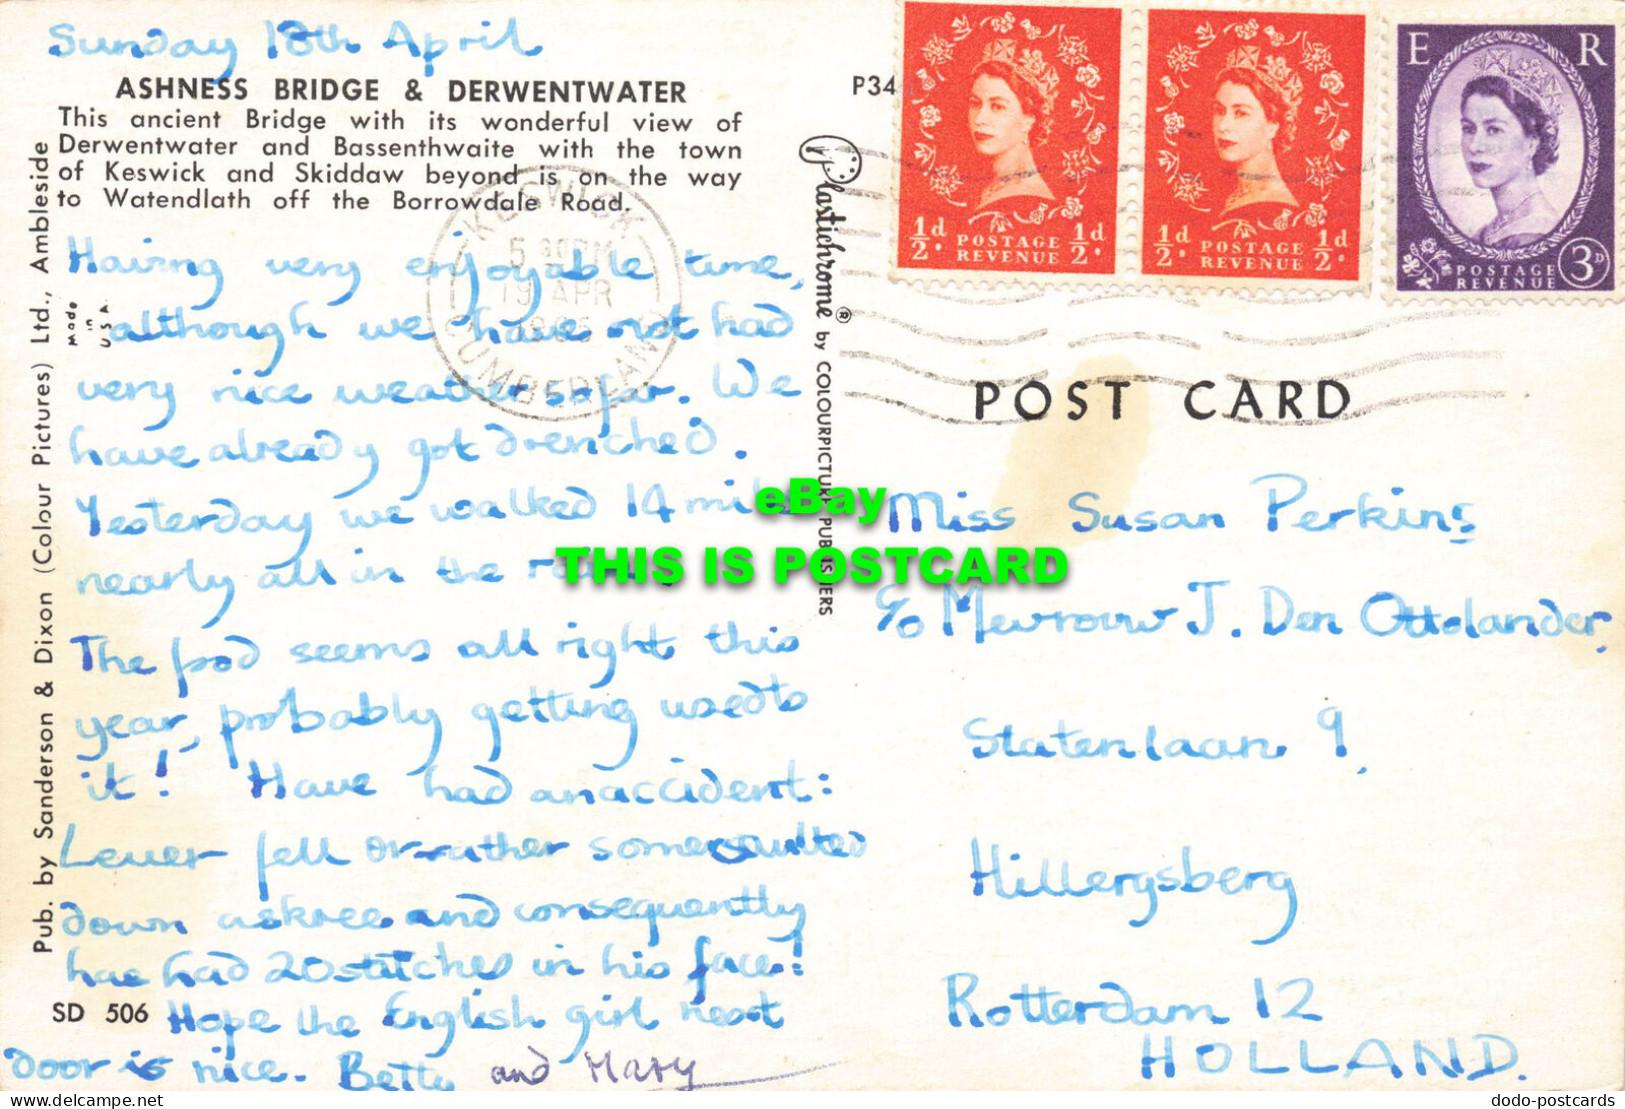 Sunday 18th April
ASHNESS BRIDGE & DERWENTWATER
This ancient Bridge with its wonderful view of
Derwentwater and Bassenthwaite with the town
of Keswick and Skiddaw beyond is on the way
to Watendlath off the Borrowdale Road.
Having very enjoyable time,
although we have not had
very nice weather so far. We
have already got drenched.
Yesterday we walked 14 miles
nearly all in the
The food seems all right this
year, probably getting used to
it! Have had an accident:
fell or rather somersaulted
down a skree and consequently
has had 20 stitches in his face!
Hope the English girl next
door is nice. Betty and Mary
SD 506
Pub. by Sanderson & Dixon (Colour Pictures) Ltd., Ambleside
Made
in
U.S.A.
KESWICK
19 APR
1965
CUMBERLAND
P34
Plastichrome® by COLOURPICTURE PUBLISHERS
½d. POSTAGE REVENUE ½d.
½d. POSTAGE REVENUE ½d.
E R
POSTAGE REVENUE 3D
POST CARD
Miss Susan Perkins
c/o Mevrouw J. Den Ottolander,
Statenlaan 9,
Hillergsberg
Rotterdam 12
HOLLAND.
eBay
THIS IS POSTCARD
dodo-postcards